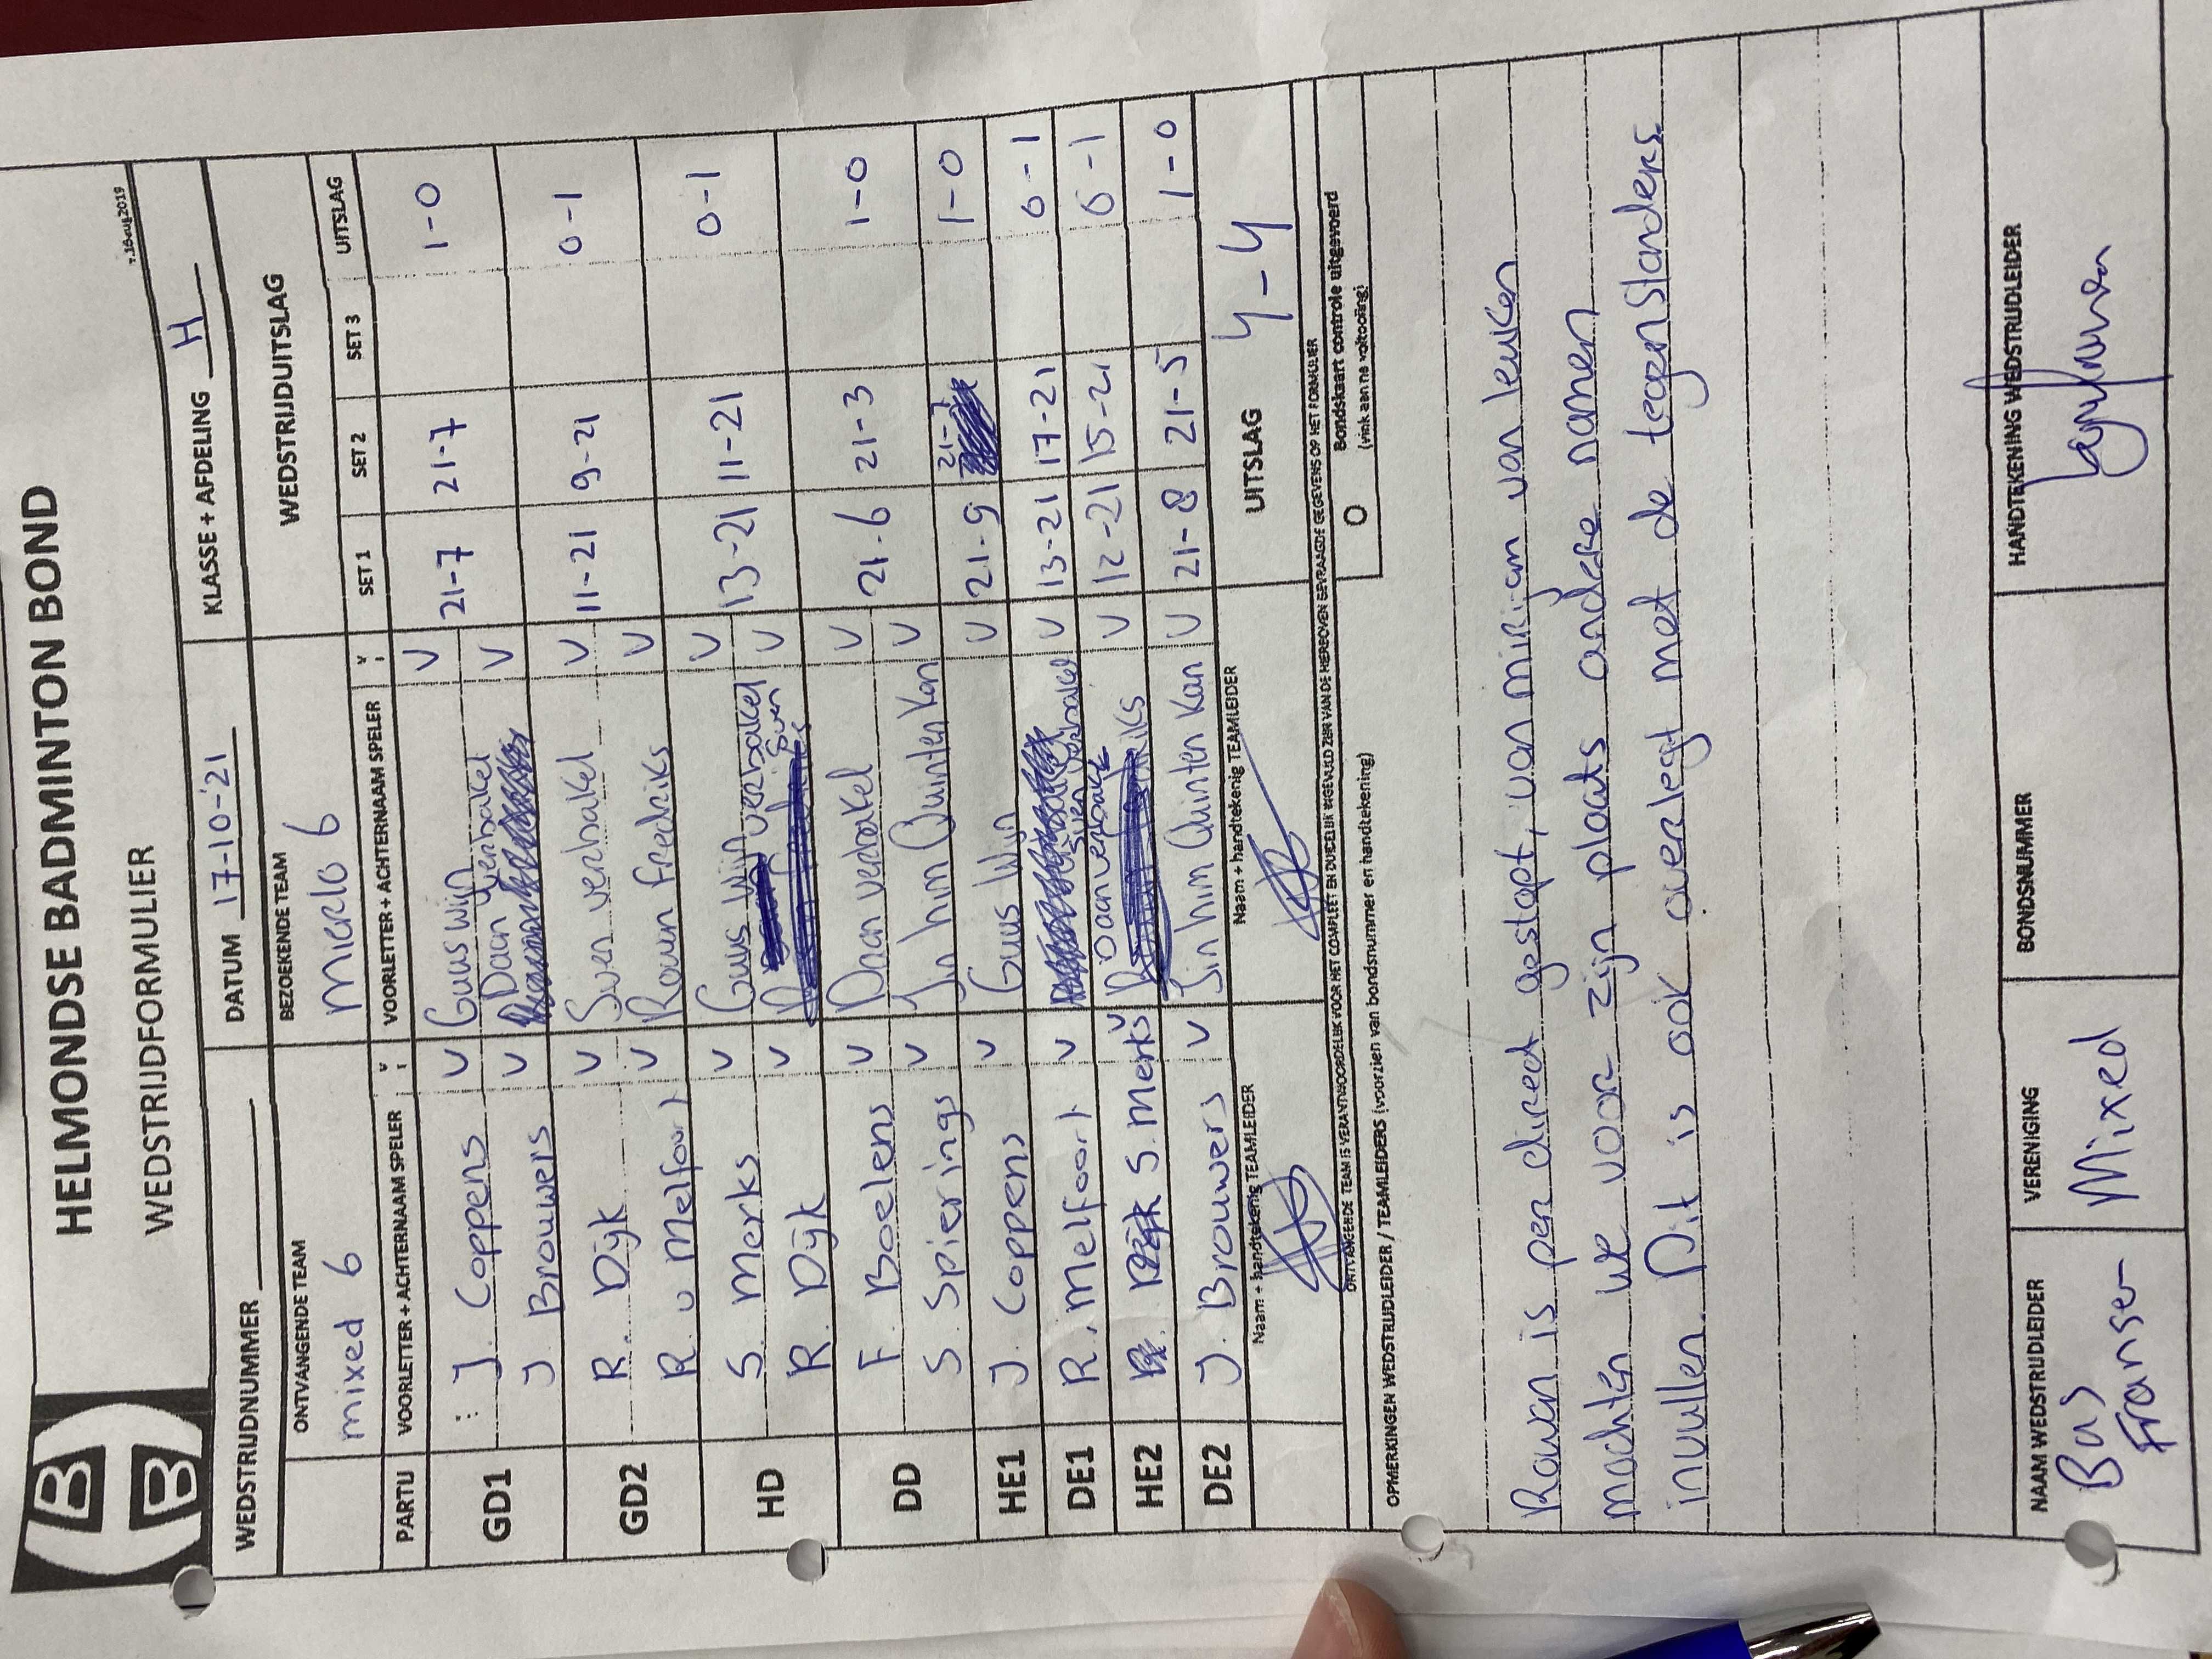 HELMONDSE BADMINTON BOND
WEDSTRIJDFORMULIER
v.16aug2019
WEDSTRIJDNUMMER DATUM 17-10-'21 KLASSE + AFDELING H
ONTVANGENDE TEAM BEZOEKENDE TEAM WEDSTRIJDUITSLAG
mixed 6 Mierlo 6
PARTIJ VOORLETTER + ACHTERNAAM SPELER VOORLETTER + ACHTERNAAM SPELER SET 1 SET 2 SET 3 UITSLAG
GD1 J. Coppens V Guus Wijn V 21-7 21-7 1-0
J Brouwers V Daan Verbakel V
GD2 R. Dijk V Sven Verbakel V 11-21 9-21 0-1
R. v Melfoort V Roun Fredriks V
HD S. Merks V Guus Wijn V 13-21 11-21 0-1
R. Dijk V Sven verbakel V
DD F. Boelens V Daan Verbakel V 21-6 21-3 1-0
S. Spierings V Jn him Quinten Kan V
HE1 J. Coppens V Guus Wijn V 21-9 21-7 1-0
DE1 R. Melfoort V Sven Verbakel V 13-21 17-21 0-1
HE2 S. Merks V Daan verbakel V 12-21 15-21 0-1
DE2 J. Brouwers V Jin him Quinten Kan V 21-8 21-5 1-0
Naam + handtekenig TEAMLEIDER Naam + handtekenig TEAMLEIDER UITSLAG 4-4
ONTVANGENDE TEAM IS VERANTWOORDELIJK VOOR HET COMPLEET EN DUIDELIJK INGEVULD ZIJN VAN DE HIERBOVEN GEVRAAGDE GEGEVENS OP HET FORMULIER
OPMERKINGEN WEDSTRIJDLEIDER / TEAMLEIDERS (voorzien van bondsnummer en handtekening) O Bondskaart controle uitgevoerd
(vink aan na voltooiing)
Rowan is per direct gestopt, van mirijam van leuken
mochten we voor zijn plaats andere namen
invullen. Dit is ook overlegt met de tegenstanders.
NAAM WEDSTRIJDLEIDER VERENIGING BONDSNUMMER HANDTEKENING WEDSTRIJDLEIDER
Bas Mixed
Fransen